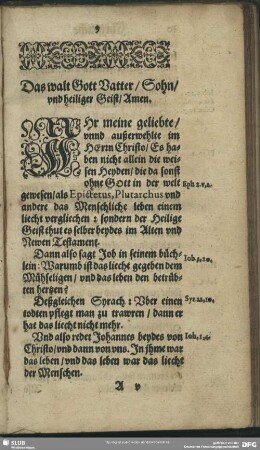 9
Das walt Gott Vatter / Sohn /
vnd heiliger Geist / Amen.
WIhr meine geliebte /
vnnd außerwehlte im
HErrn Christo / Es ha-
ben nicht allein die wei-
sen Heyden / die da sonst
ohne GOtt in der welt
Eph.2.v.2.
gewesen / als Epictetus, Plutarchus vnd
andere das Menschliche leben einem
liecht verglichen: sondern der Heilige
Geist thut es selber beydes im Alten vnd
Newen Testament.
Dann also sagt Job in seinem büch-
Iob.3.20.
lein: Warumb ist das liecht gegeben dem
Mühseligen / vnd das leben den betrüb-
ten hertzen?
Deßgleichen Syrach: Vber einen
Syr.22.10.
todten pflegt man zu trawren / dann er
hat das liecht nicht mehr.
Vnd also redet Johannes beydes von
Ioh.1.4.
Christo / vnd dann von vns. In jhme war
das leben / vnd das leben war das liecht
der Menschen.
A v
SLUB
DFG